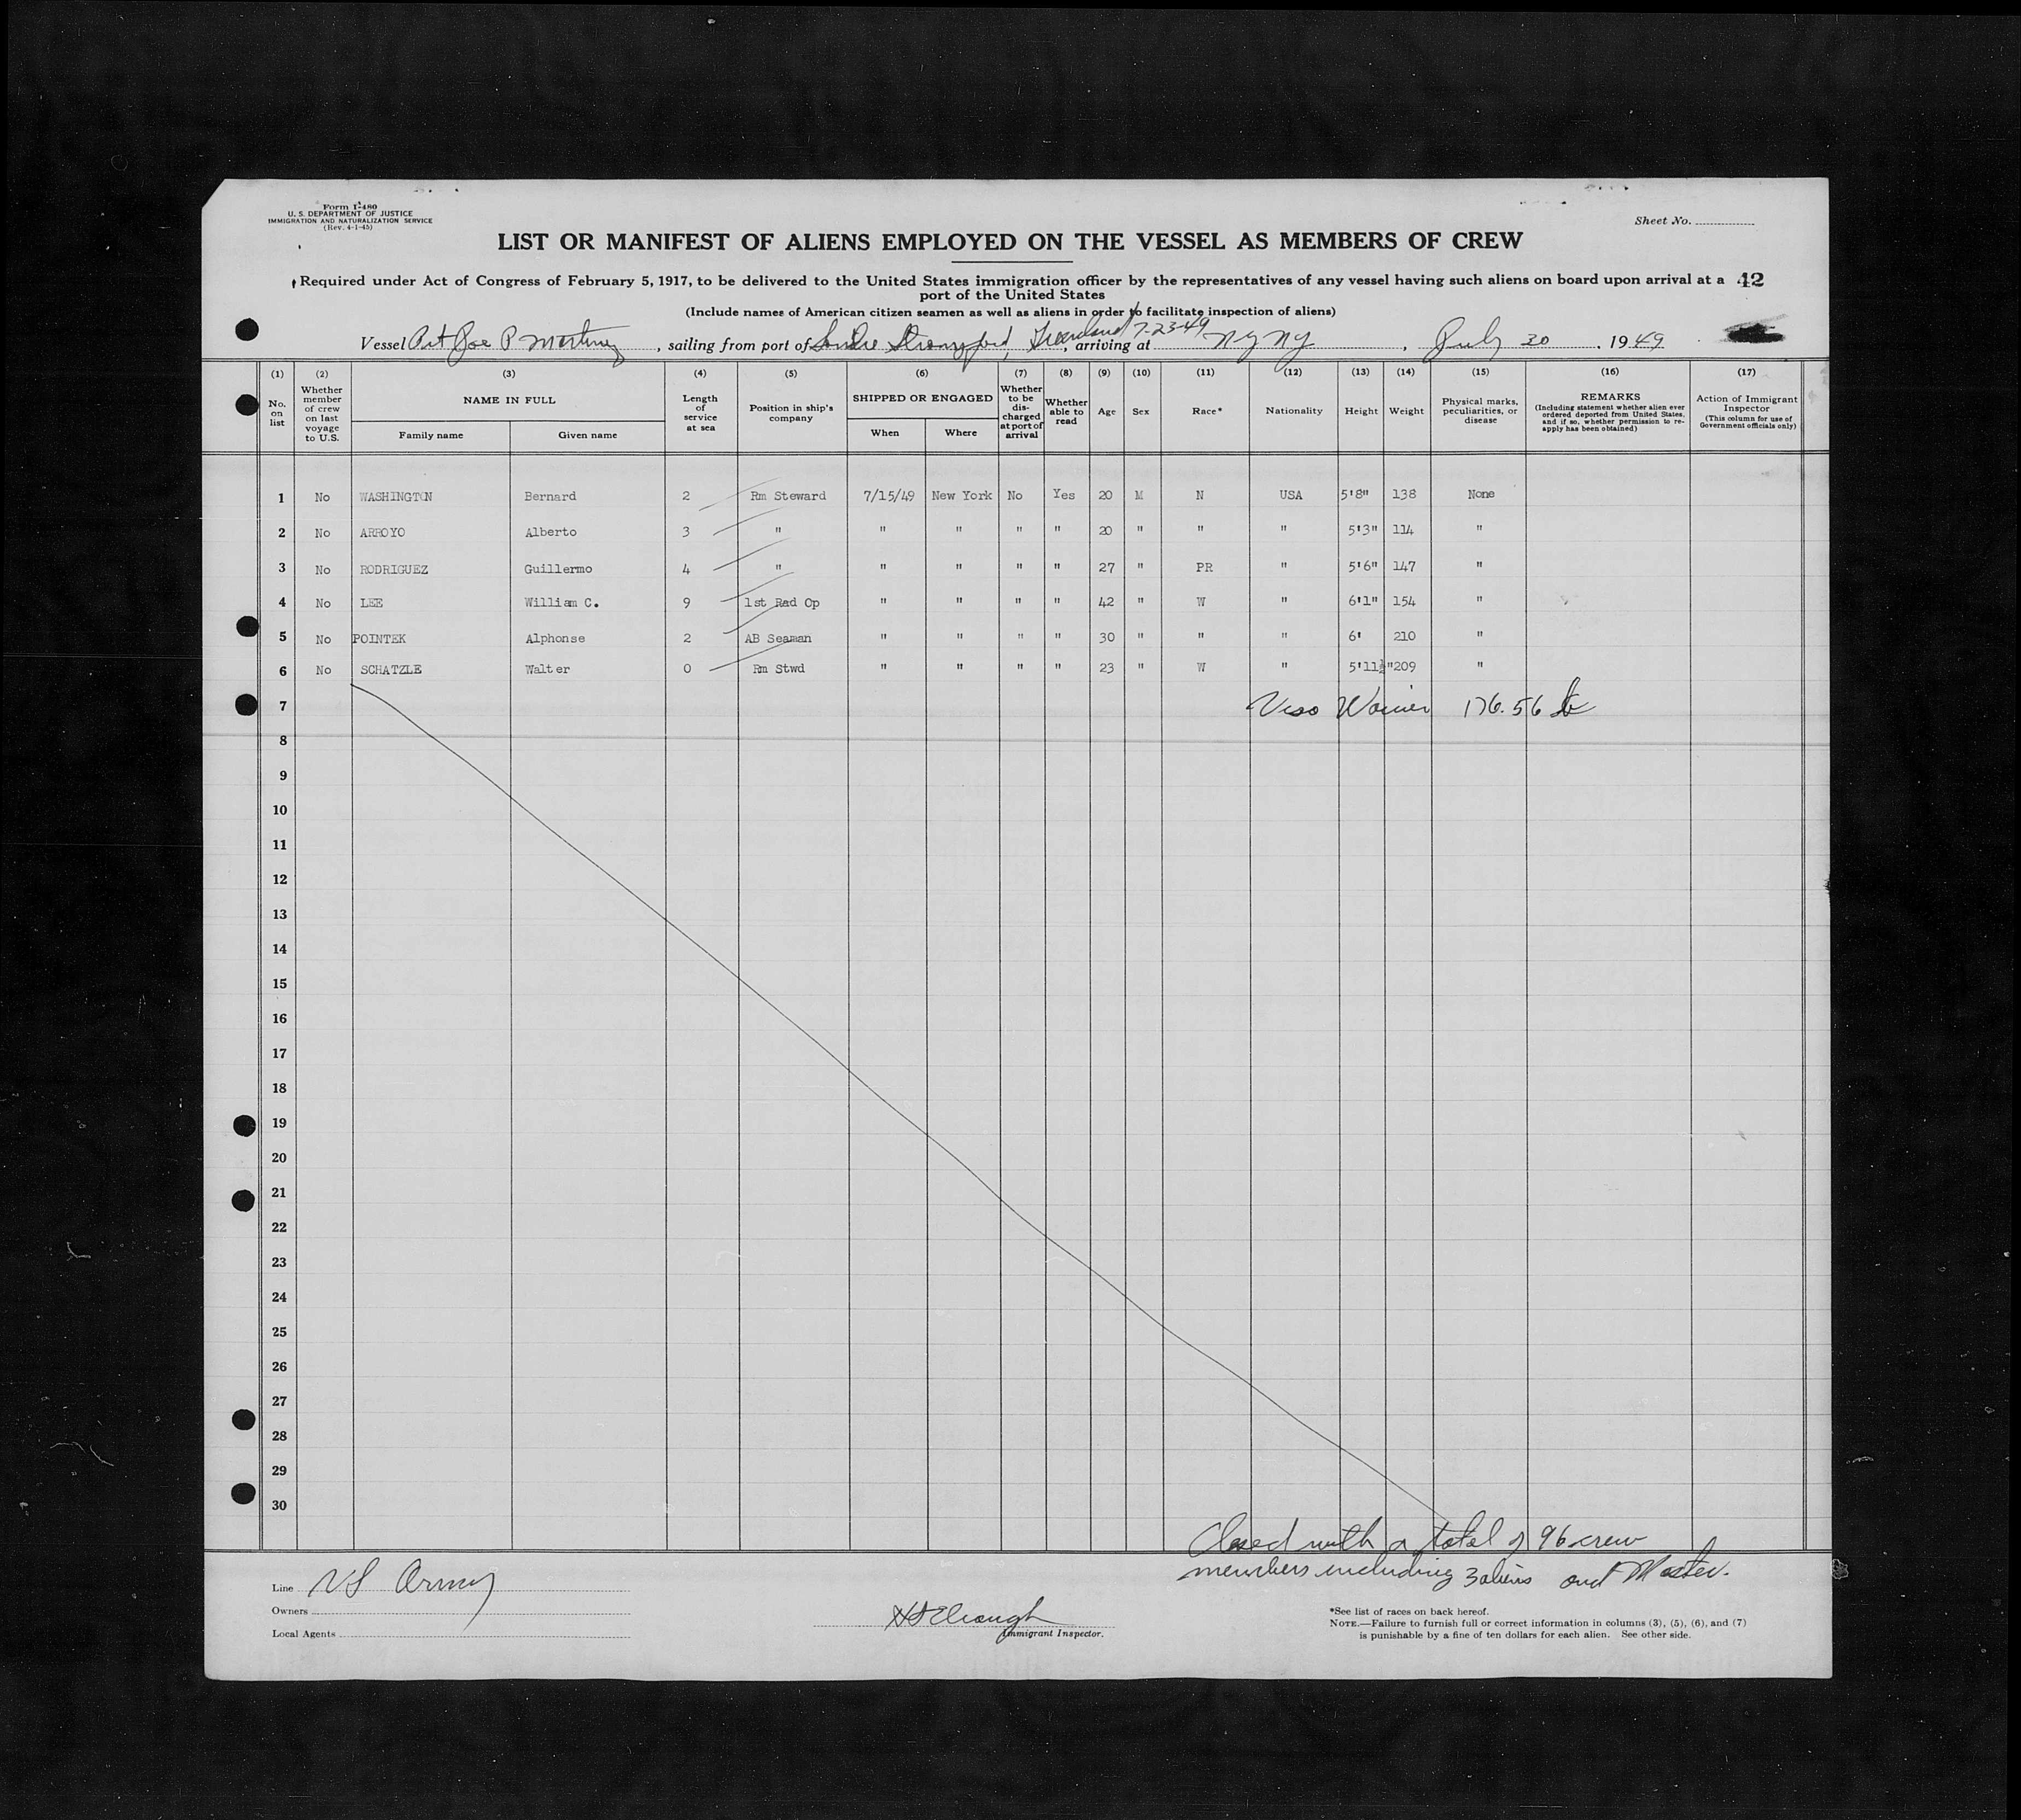 Form I-480
U. S. DEPARTMENT OF JUSTICE
IMMIGRATION AND NATURALIZATION SERVICE
(Rev. 4-1-45)
Sheet No.
LIST OR MANIFEST OF ALIENS EMPLOYED ON THE VESSEL AS MEMBERS OF CREW
Required under Act of Congress of February 5, 1917, to be delivered to the United States immigration officer by the representatives of any vessel having such aliens on board upon arrival at a 42
port of the United States
(Include names of American citizen seamen as well as aliens in order to facilitate inspection of aliens)
Vessel Pvt Joe P Martinez, sailing from port of Sondre Stromfjord, Greenland 7-23-49, arriving at NY NY, July 30, 1949
(1) (2) (3) (4) (5) (6) (7) (8) (9) (10) (11) (12) (13) (14) (15) (16) (17)
No. on list
Whether member of crew on last voyage to U.S.
NAME IN FULL
Family name
Given name
Length of service at sea
Position in ship's company
SHIPPED OR ENGAGED
When
Where
Whether to be discharged at port of arrival
Whether able to read
Age
Sex
Race*
Nationality
Height
Weight
Physical marks, peculiarities, or disease
REMARKS
(Including statement whether alien ever ordered deported from United States, and if so, whether permission to reapply has been obtained)
Action of Immigrant Inspector
(This column for use of Government officials only)
1 No WASHINGTON Bernard 2 Rm Steward 7/15/49 New York No Yes 20 M N USA 5'8" 138 None
2 No ARROYO Alberto 3 " " " " " 20 " " " 5'3" 114 "
3 No RODRIGUEZ Guillermo 4 " " " " " 27 " PR " 5'6" 147 "
4 No LEE William C. 9 1st Rad Op " " " " 42 " W " 6'1" 154 "
5 No POINTEK Alphonse 2 AB Seaman " " " " 30 " " " 6' 210 "
6 No SCHATZLE Walter 0 Rm Stwd " " " " 23 " W " 5'11½" 209 "
7 Waiver 176.56
8
9
10
11
12
13
14
15
16
17
18
19
20
21
22
23
24
25
26
27
28
29
30
Closed with a total of 96 crew
members including 3 aliens and Master.
Line US Army
Owners
Local Agents
Immigrant Inspector.
*See list of races on back hereof.
NOTE.—Failure to furnish full or correct information in columns (3), (5), (6), and (7)
is punishable by a fine of ten dollars for each alien. See other side.